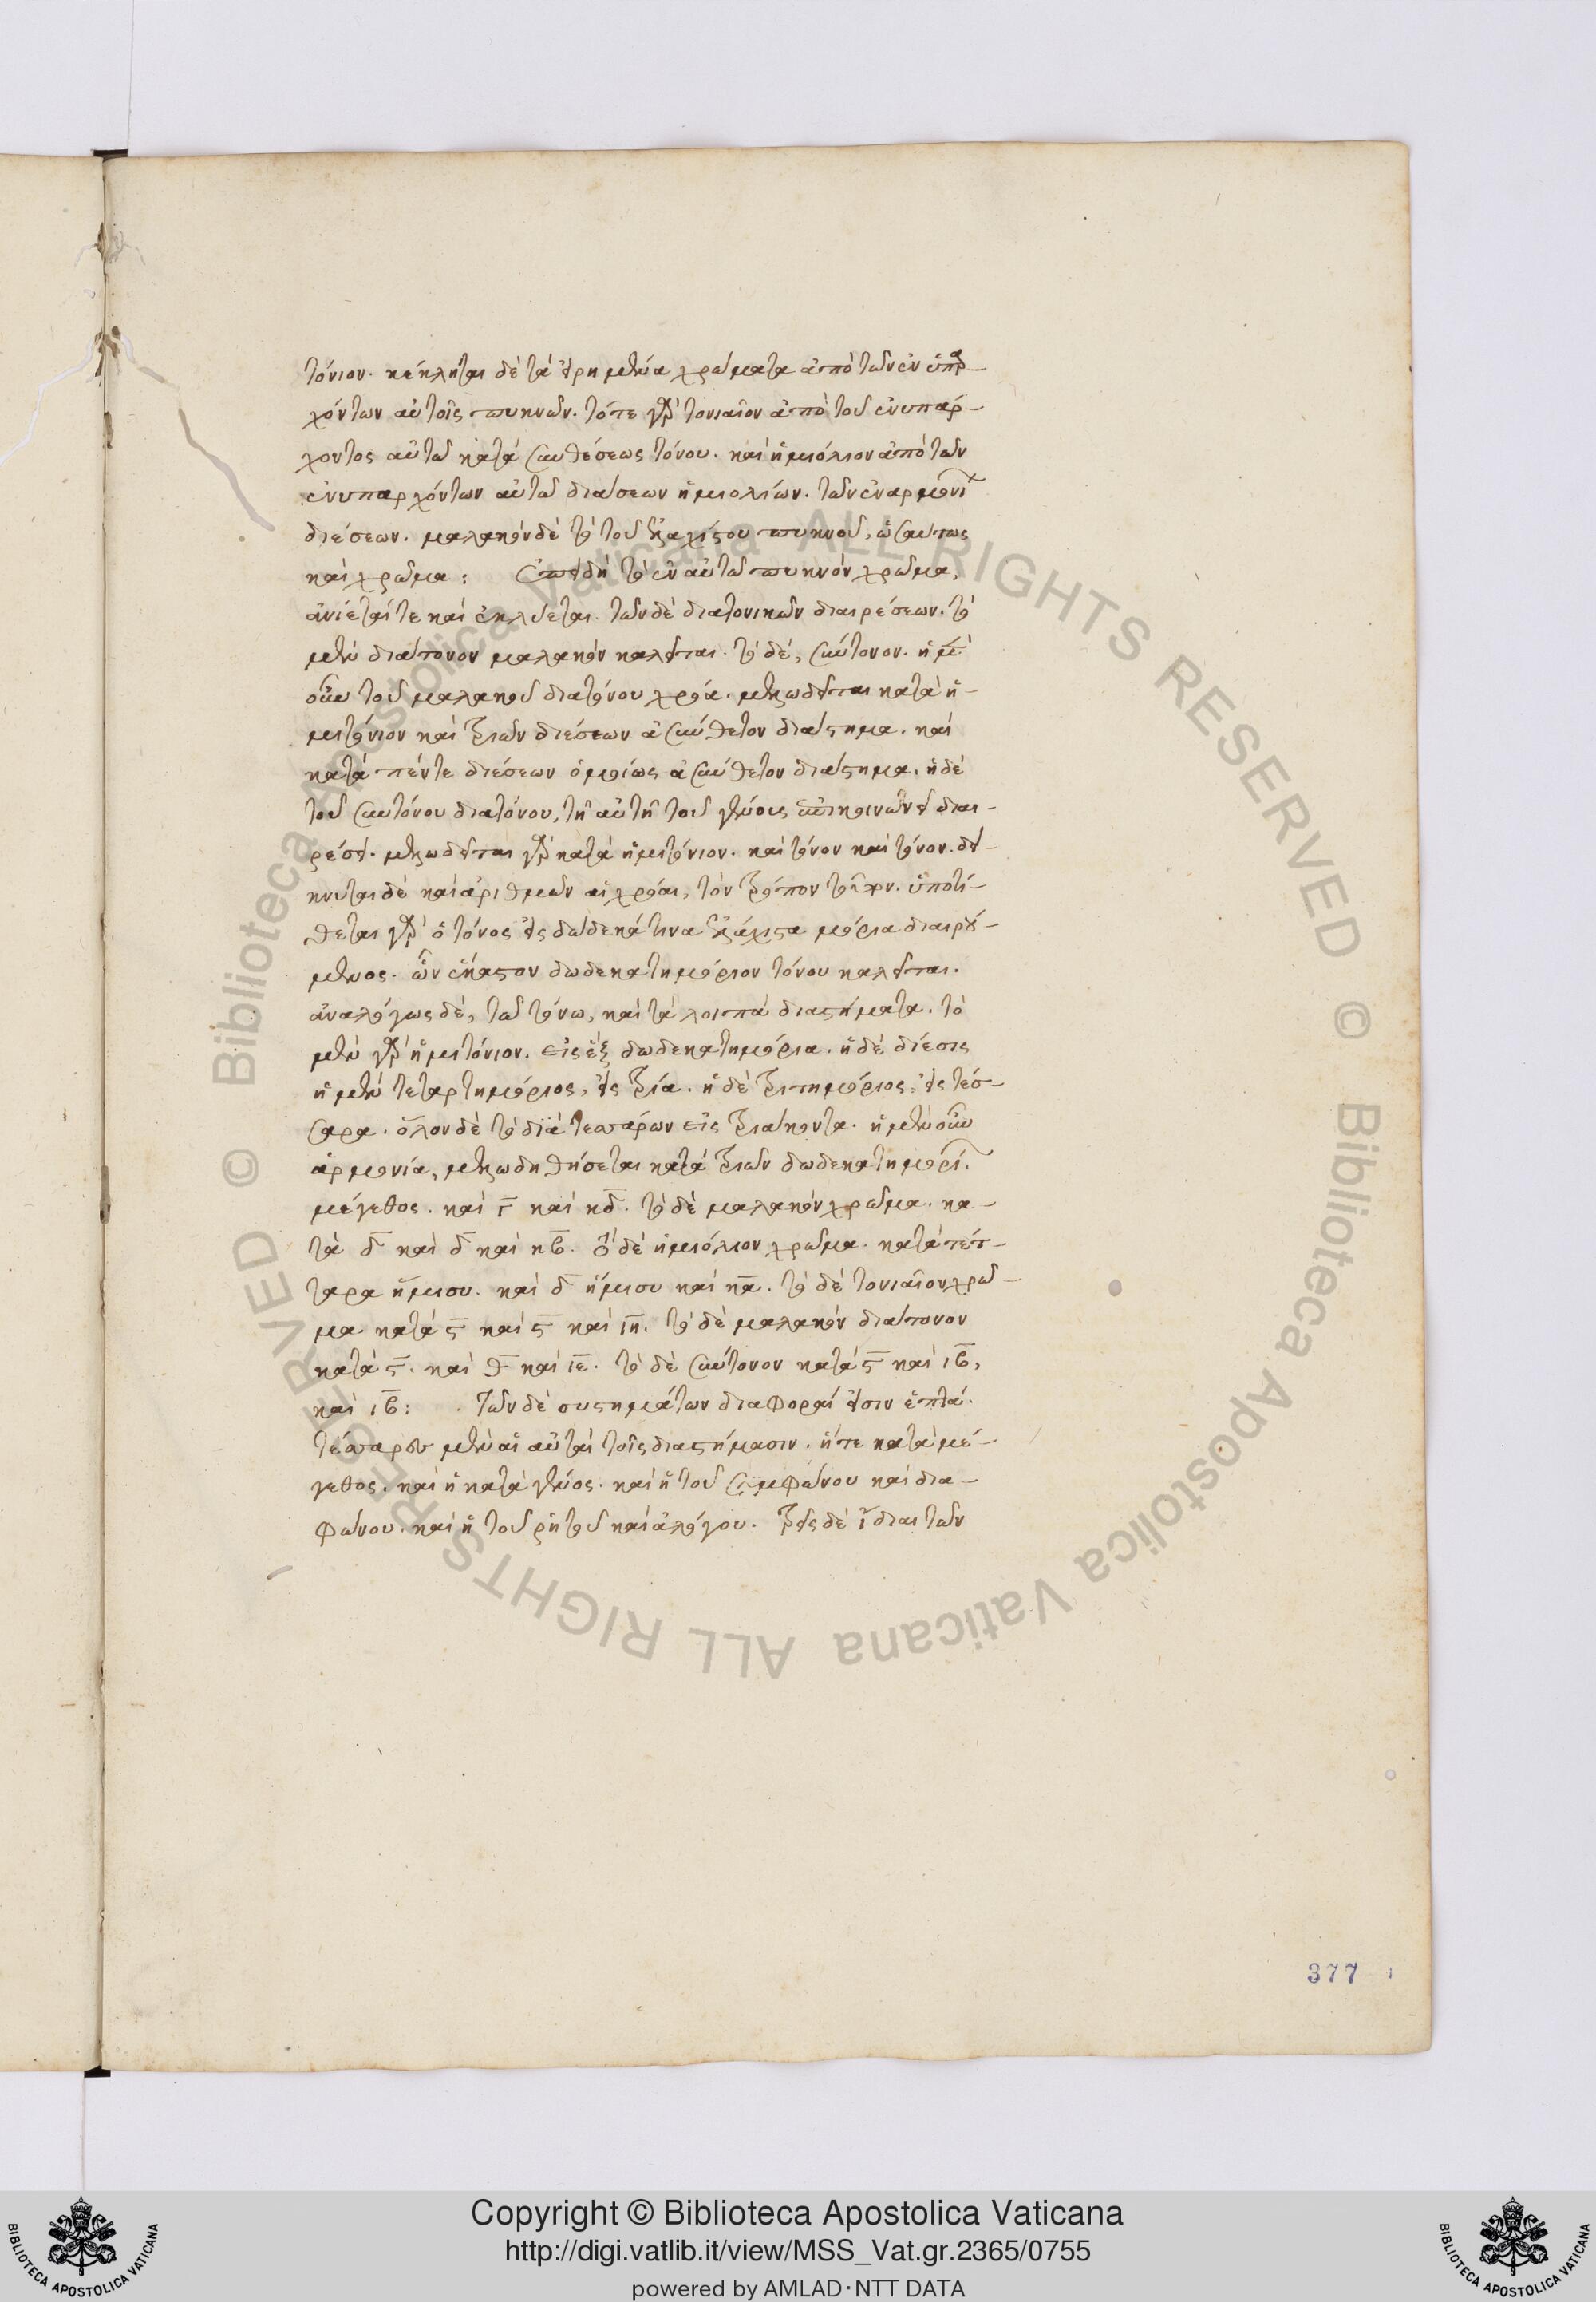 τόνιον. κέκληται δὲ τὰ εἰρημένα χρώματα ἀπὸ τῶν ἐν ὑπαρ-
χόντων αὐτοῖς πυκνῶν. τό τε γὰρ τονιαῖον ἀπὸ τοῦ ἐνυπάρ-
χοντος αὐτῶ κατὰ συνθέσεως τόνου. καὶ ἡμιόλιον ἀπὸ τῶν
ἐνυπαρχόντων αὐτῶ διέσεων ἡμιολίων. τῶν ἐναρμονί
διέσεων. μαλακὸν δὲ τὸ τοῦ ἐλαχίστου πυκνοῦ, ὡσαύτως
καὶ χρῶμα: Ἐπειδὴ τὸ ἐν αὐτῶ πυκνὸν χρῶμα,
ἀνίεταί τε καὶ ἐκλύεται. τῶν δὲ διατονικῶν διαιρέσεων. τὸ
μὲν διάτονον μαλακὸν καλεῖται. τὸ δέ, σύντονον. ἡ μὲ
οὖν τοῦ μαλακοῦ διατόνου χρόα. μελωδεῖται κατὰ ἡ-
μιτόνιον καὶ τριῶν διέσεων ἀσύνθετον διάστημα. καὶ
κατὰ πέντε διέσεων ὁμοίως ἀσύνθετον διάστημα. ἡ δὲ
τοῦ συντόνου διατόνου, τῆ αὐτῆ τοῦ γένους ἐπικοινωνεῖ διαι-
ρέσει. μελωδεῖται γὰρ κατὰ ἡμιτόνιον. καὶ τόνον καὶ τόνον. δεί-
κνυται δὲ καὶ ἀριθμῶν αἱ χρόαι, τὸν τρόπον τοῦτον. ὑποτί-
θεται γὰρ ὁ τόνος εἰς δώδεκά τινα ἐλάχιστα μόρια διαιρού-
μενος. ὧν ἕκαστον δωδεκατημόριον τόνου καλεῖται.
ἀναλόγως δέ, τῶ τόνω, καὶ τὰ λοιπὰ διαστήματα. τὸ
μὲν γὰρ ἡμιτόνιον. εἰς ἓξ δωδεκατημόρια. ἡ δὲ δίεσις
ἡ μὲν τεταρτημόριος, εἰς τρία. ἡ δὲ τριτημόριος, εἰς τέσ-
σαρα. ὅλον δὲ τὸ διὰ τεσσάρων εἰς τριάκοντα. ἡ μὲν οὖν
ἁρμονία, μελωδηθήσεται κατὰ τριῶν δωδεκατημορί.
μέγεθος. καὶ γ̅ καὶ κ̅δ̅. τὸ δὲ μαλακὸν χρῶμα. κα-
τὰ δ̅ καὶ δ̅ καὶ κ̅β̅. τὸ δὲ ἡμιόλιον χρῶμα. κατὰ τέτ-
ταρα ἥμισυ. καὶ δ̅ ἥμισυ καὶ κ̅α̅. τὸ δὲ τονιαῖον χρῶ-
μα κατὰ ϛ̅ καὶ ϛ̅ καὶ ι̅η̅. τὸ δὲ μαλακὸν διάτονον
κατὰ ϛ̅. καὶ θ̅ καὶ ι̅ε̅. τὸ δὲ σύντονον κατὰ ϛ̅ καὶ ι̅β̅,
καὶ ι̅β̅: Τῶν δὲ συστημάτων διαφοραί εἰσιν ἑπτά.
τέσσαρες μὲν αἱ αὐταὶ τοῖς διαστήμασιν. ἥ τε κατὰ μέ-
γεθος. καὶ ἡ κατὰ γένος. καὶ ἡ τοῦ συμφώνου καὶ δια-
φώνου. καὶ ἡ τοῦ ῥητοῦ καὶ ἀλόγου. τρεῖς δὲ ἴδιαι τῶν
377
© Biblioteca Apostolica Vaticana ALL RIGHTS RESERVED © Biblioteca Apostolica Vaticana ALL RIGHTS RESERVED
Copyright © Biblioteca Apostolica Vaticana
http://digi.vatlib.it/view/MSS_Vat.gr.2365/0755
powered by AMLAD·NTT DATA
BIBLIOTECA APOSTOLICA VATICANA
BIBLIOTECA APOSTOLICA VATICANA